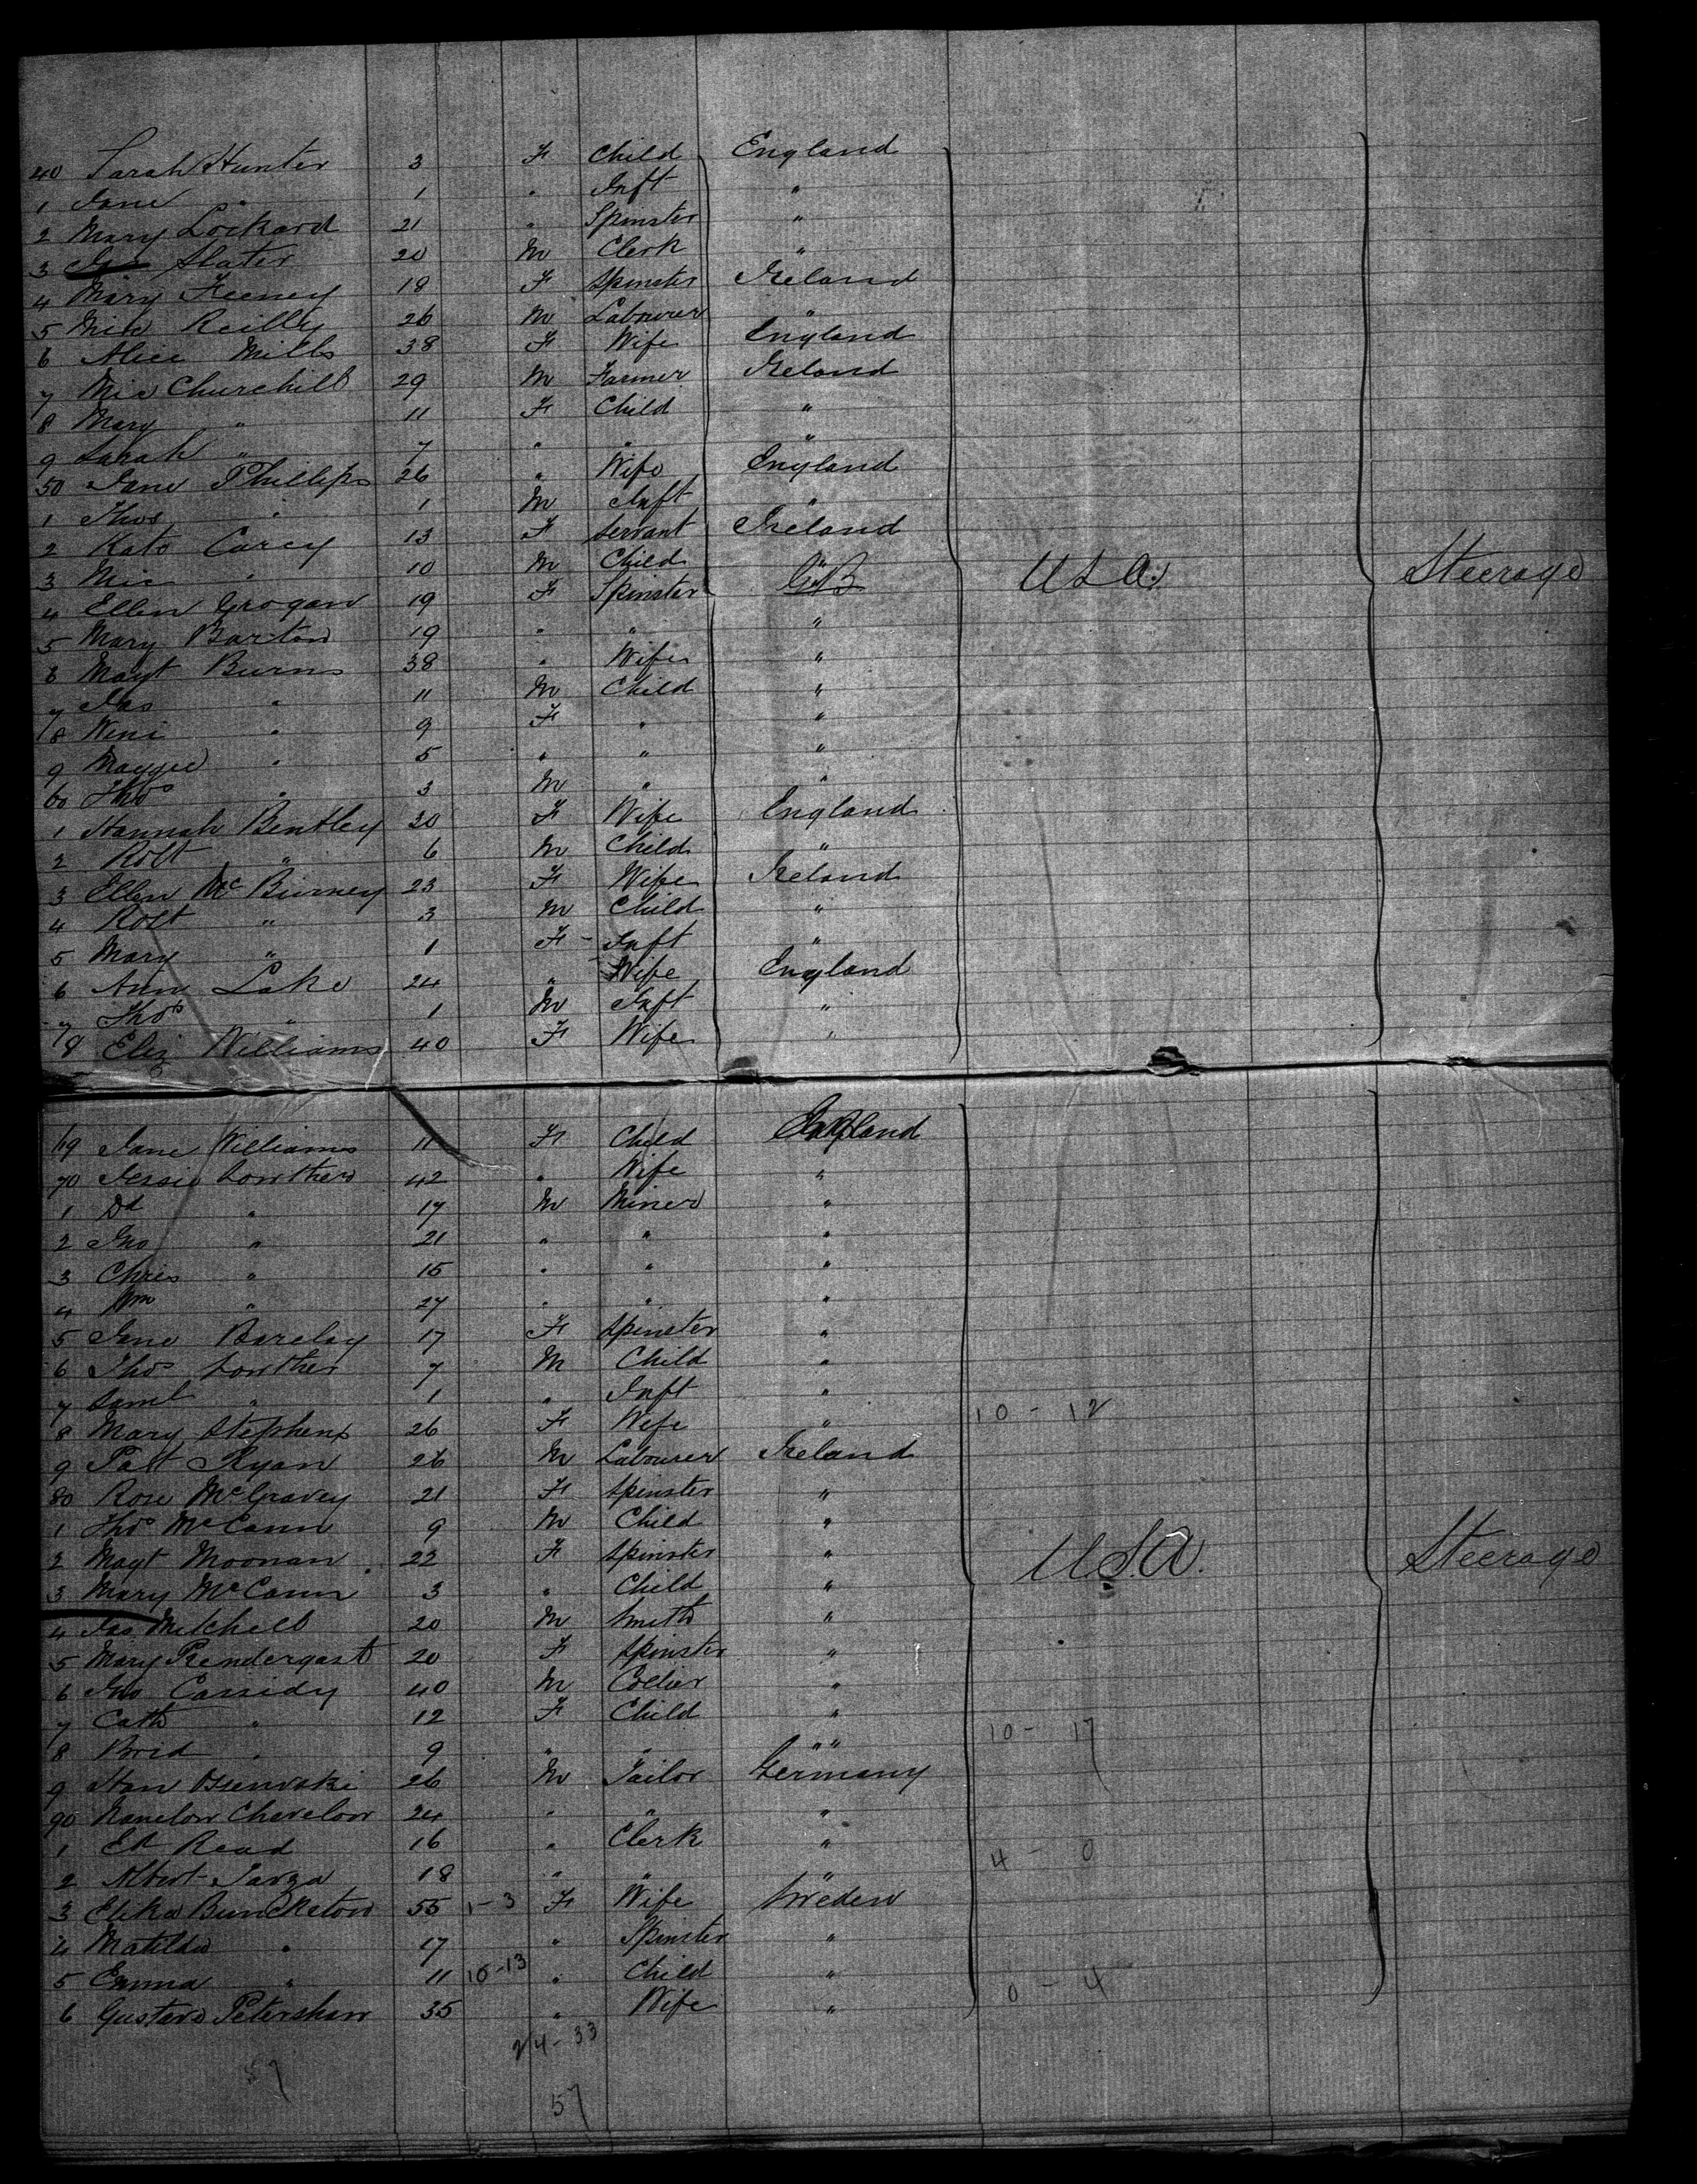 40 Sarah Hunter 3 F Child England
1 Jane " 1 " Inft "
2 Mary Lockard 21 " Spinster "
3 Slater 20 M Clerk "
4 Mary Feeney 18 F Spinster Ireland
5 Mic Reilly 26 M Labourer "
6 Alice Mills 38 F Wife England
7 Mic Churchill 29 M Farmer Ireland
8 Mary " 11 F Child "
9 Sarah " 7 " " "
50 Jane Phillips 26 " Wife England
1 Thos " 1 M Inft "
2 Kate Carey 13 F Servant Ireland
3 Mic " 10 M Child "
4 Ellen Grogan 19 F Spinster G.B U.S.A. Steerage
5 Mary Barton 19 " " "
6 Magt Burns 38 " Wife "
7 Jas " 11 M Child "
8 Wini " 9 F " "
9 Maggie " 5 " " "
60 Thos " 3 M " "
1 Hannah Bentley 30 F Wife England
2 Robt " 6 M Child "
3 Ellen McBirney 23 F Wife Ireland
4 Robt " 3 M Child "
5 Mary " 1 F - Inft "
6 Ann Lake 24 " Wife England
7 Thos " 1 M Inft "
8 Eliz Williams 40 F Wife "
69 Jane Williams 11 F Child England
70 Jessie Lowther 42 " Wife "
1 Dd " 17 M Miner "
2 Jno " 21 " " "
3 Chris " 15 " " "
4 Wm " 27 " " "
5 Jane Barclay 17 F Spinster "
6 Thos Lowther 7 M Child "
7 Saml " 1 " Inft "
8 Mary Stephens 26 F Wife " 10 - 12
9 Patt Ryan 26 M Labourer Ireland
80 Rose McGravey 21 F Spinster "
1 Thos McCann 9 M Child "
2 Magt Moonan 22 F Spinster " U.S.A. Steerage
3 Mary McCann 3 " Child "
4 Jas Mitchell 20 M Smith "
5 Mary Prendergast 20 F Spinster "
6 Jno Cassidy 40 M Collier "
7 Cath " 12 F Child " 10 - 17
8 Brid " 9 " " " "
9 26 M Tailor Germany
90 24 " " "
1 Ed Read 16 " Clerk " 4 - 0
2 Albert 18 " " "
3 Bunckston 55 1-3 F Wife Sweden
4 Matilda " 17 " Spinster "
5 Emma " 11 10-13 " Child " 0 - 4
6 Gustava Petershan 35 " Wife "
24-33
57
57